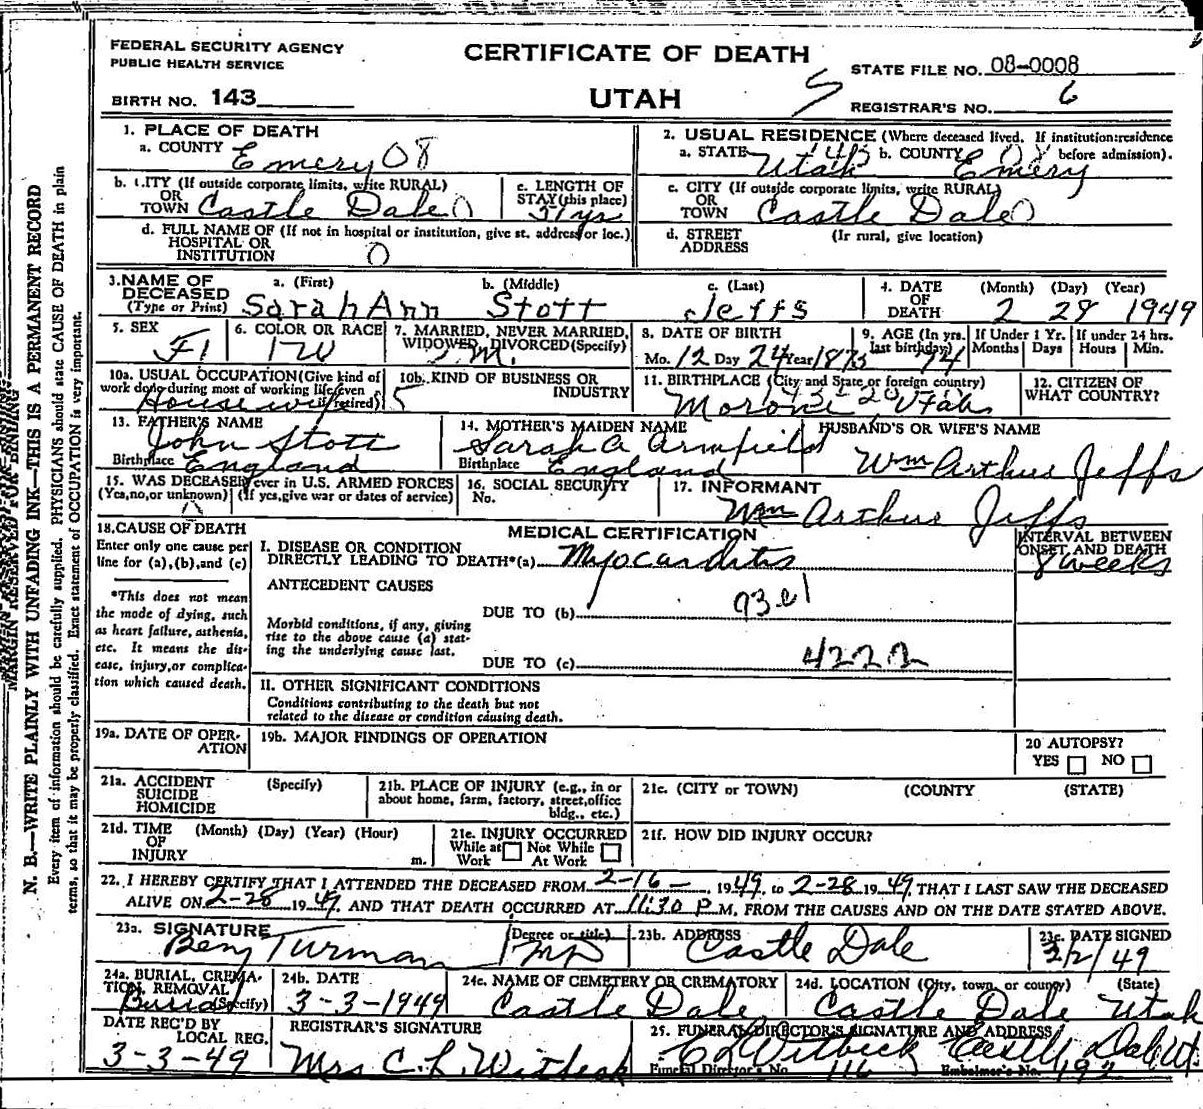 FEDERAL SECURITY AGENCY
PUBLIC HEALTH SERVICE
CERTIFICATE OF DEATH
STATE FILE NO. 08-0008
BIRTH NO. 143
UTAH
REGISTRAR'S NO. 6
1. PLACE OF DEATH
a. COUNTY Emery 08
2. USUAL RESIDENCE (Where deceased lived. If institution: residence before admission).
a. STATE Utah b. COUNTY Emery
b. CITY (If outside corporate limits, write RURAL) OR TOWN Castle Dale 0
c. LENGTH OF STAY (this place) yrs
c. CITY (If outside corporate limits, write RURAL) OR TOWN Castle Dale 0
d. FULL NAME OF (If not in hospital or institution, give st. address or loc.) HOSPITAL OR INSTITUTION 0
d. STREET ADDRESS (Ir rural, give location)
3. NAME OF DECEASED (Type or Print)
a. (First) Sarah Ann b. (Middle) Stott c. (Last) Jeffs
4. DATE OF DEATH (Month) (Day) (Year) 2 28 1949
5. SEX F1
6. COLOR OR RACE 1W
7. MARRIED, NEVER MARRIED, WIDOWED, DIVORCED (Specify) M.
8. DATE OF BIRTH Mo. 12 Day 24 Year
9. AGE (In yrs. last birthday) 74
If Under 1 Yr. Months Days
If under 24 hrs. Hours Min.
10a. USUAL OCCUPATION (Give kind of work done during most of working life, even if retired) Housewife
10b. KIND OF BUSINESS OR INDUSTRY 5
11. BIRTHPLACE (City and State or foreign country) Moroni Utah
12. CITIZEN OF WHAT COUNTRY?
13. FATHER'S NAME John Stott
Birthplace England
14. MOTHER'S MAIDEN NAME Sarah A Armfield
Birthplace England
HUSBAND'S OR WIFE'S NAME
Wm Arthur Jeffs
15. WAS DECEASED ever in U.S. ARMED FORCES (Yes, no, or unknown) (If yes, give war or dates of service)
16. SOCIAL SECURITY No.
17. INFORMANT
Wm Arthur Jeffs
18. CAUSE OF DEATH
Enter only one cause per line for (a), (b), and (c)
*This does not mean the mode of dying, such as heart failure, asthenia, etc. It means the disease, injury, or complication which caused death.
MEDICAL CERTIFICATION
INTERVAL BETWEEN ONSET AND DEATH
8 weeks
I. DISEASE OR CONDITION DIRECTLY LEADING TO DEATH*(a) Myocarditis
ANTECEDENT CAUSES
DUE TO (b)
Morbid conditions, if any, giving rise to the above cause (a) stating the underlying cause last.
DUE TO (c) 4222
II. OTHER SIGNIFICANT CONDITIONS
Conditions contributing to the death but not related to the disease or condition causing death.
19a. DATE OF OPERATION
19b. MAJOR FINDINGS OF OPERATION
20 AUTOPSY?
YES NO
21a. ACCIDENT SUICIDE HOMICIDE (Specify)
21b. PLACE OF INJURY (e.g., in or about home, farm, factory, street, office bldg., etc.)
21c. (CITY or TOWN) (COUNTY) (STATE)
21d. TIME OF INJURY (Month) (Day) (Year) (Hour) m.
21e. INJURY OCCURRED While at Work Not While At Work
21f. HOW DID INJURY OCCUR?
22. I HEREBY CERTIFY THAT I ATTENDED THE DECEASED FROM 2-16- , 1949, to 2-28 1949 THAT I LAST SAW THE DECEASED
ALIVE ON 2-28 1949, AND THAT DEATH OCCURRED AT 11:30 P M, FROM THE CAUSES AND ON THE DATE STATED ABOVE.
23a. SIGNATURE Benj Turman (Degree or title) MD
23b. ADDRESS Castle Dale
23c. DATE SIGNED 3/2/49
24a. BURIAL, CREMATION, REMOVAL (Specify) Burial
24b. DATE 3-3-1949
24c. NAME OF CEMETERY OR CREMATORY Castle Dale
24d. LOCATION (City, town, or county) (State) Castle Dale Utah
DATE REC'D BY LOCAL REG. 3-3-49
REGISTRAR'S SIGNATURE Mrs C. L. Witbeck
25. FUNERAL DIRECTOR'S SIGNATURE AND ADDRESS
C L Witbeck Castle Dale Ut.
Funeral Director's No. 116 Embalmer's No. 192
MARGIN RESERVED FOR BINDING
N. B.—WRITE PLAINLY WITH UNFADING INK—THIS IS A PERMANENT RECORD
Every item of information should be carefully supplied. PHYSICIANS should state CAUSE OF DEATH in plain
terms, so that it may be properly classified. Exact statement of OCCUPATION is very important.